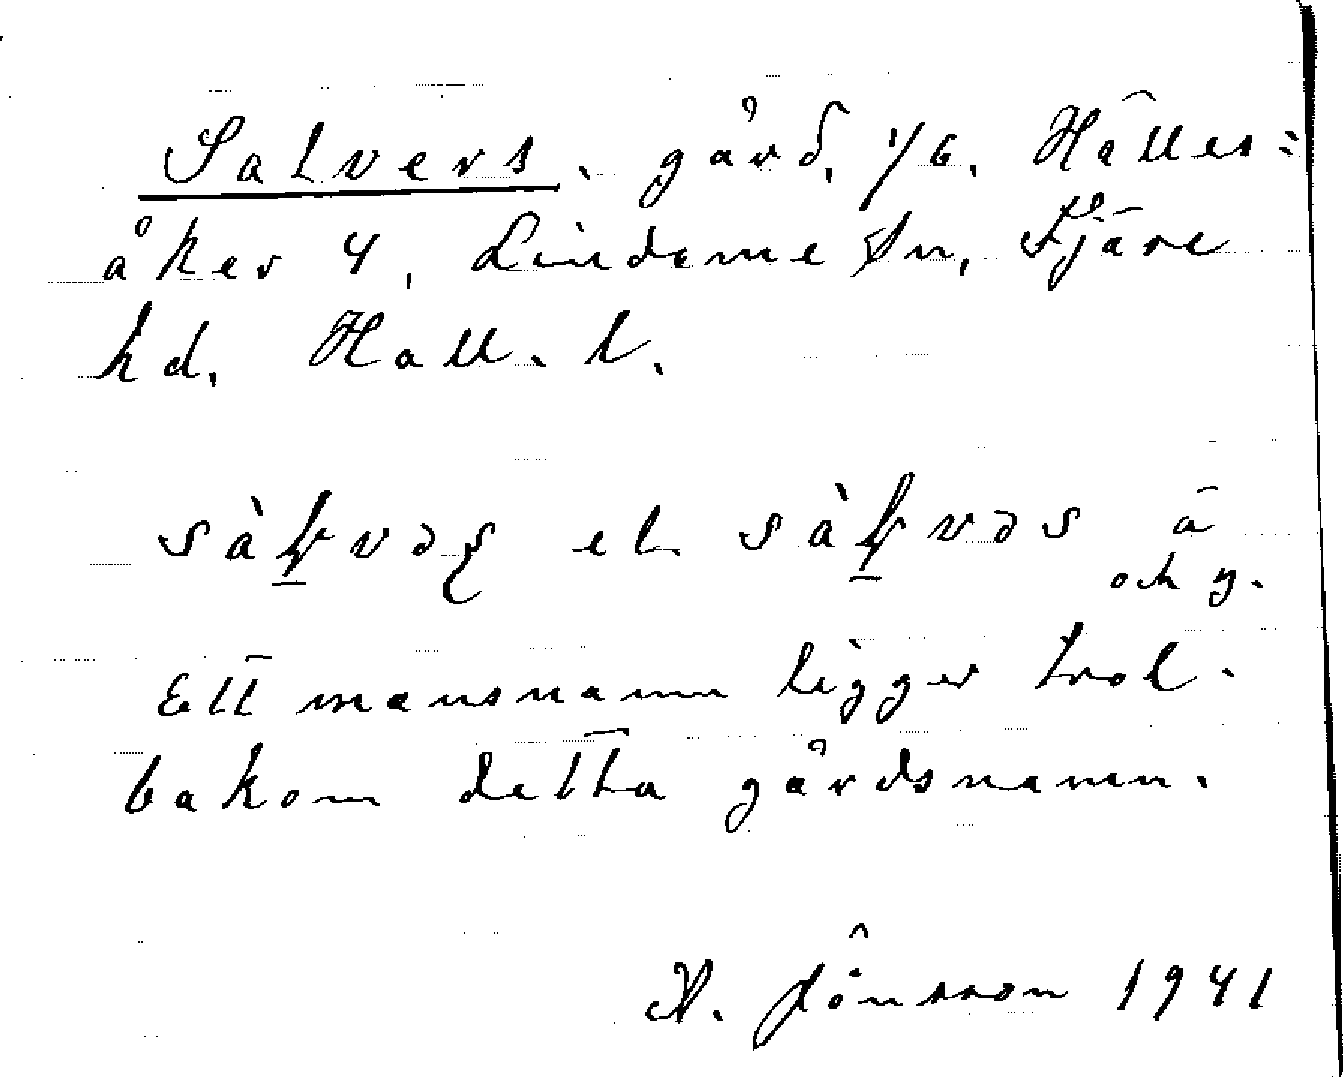 Salvers. gård. 1/6. Hälles=
åker 4, Lindome sn, Fjäre
hd. Hall. l.
el.
ä
och y.
Ett mansnamn ligger trol.
bakom detta gårdsnamn.
N. Jönsson 1941